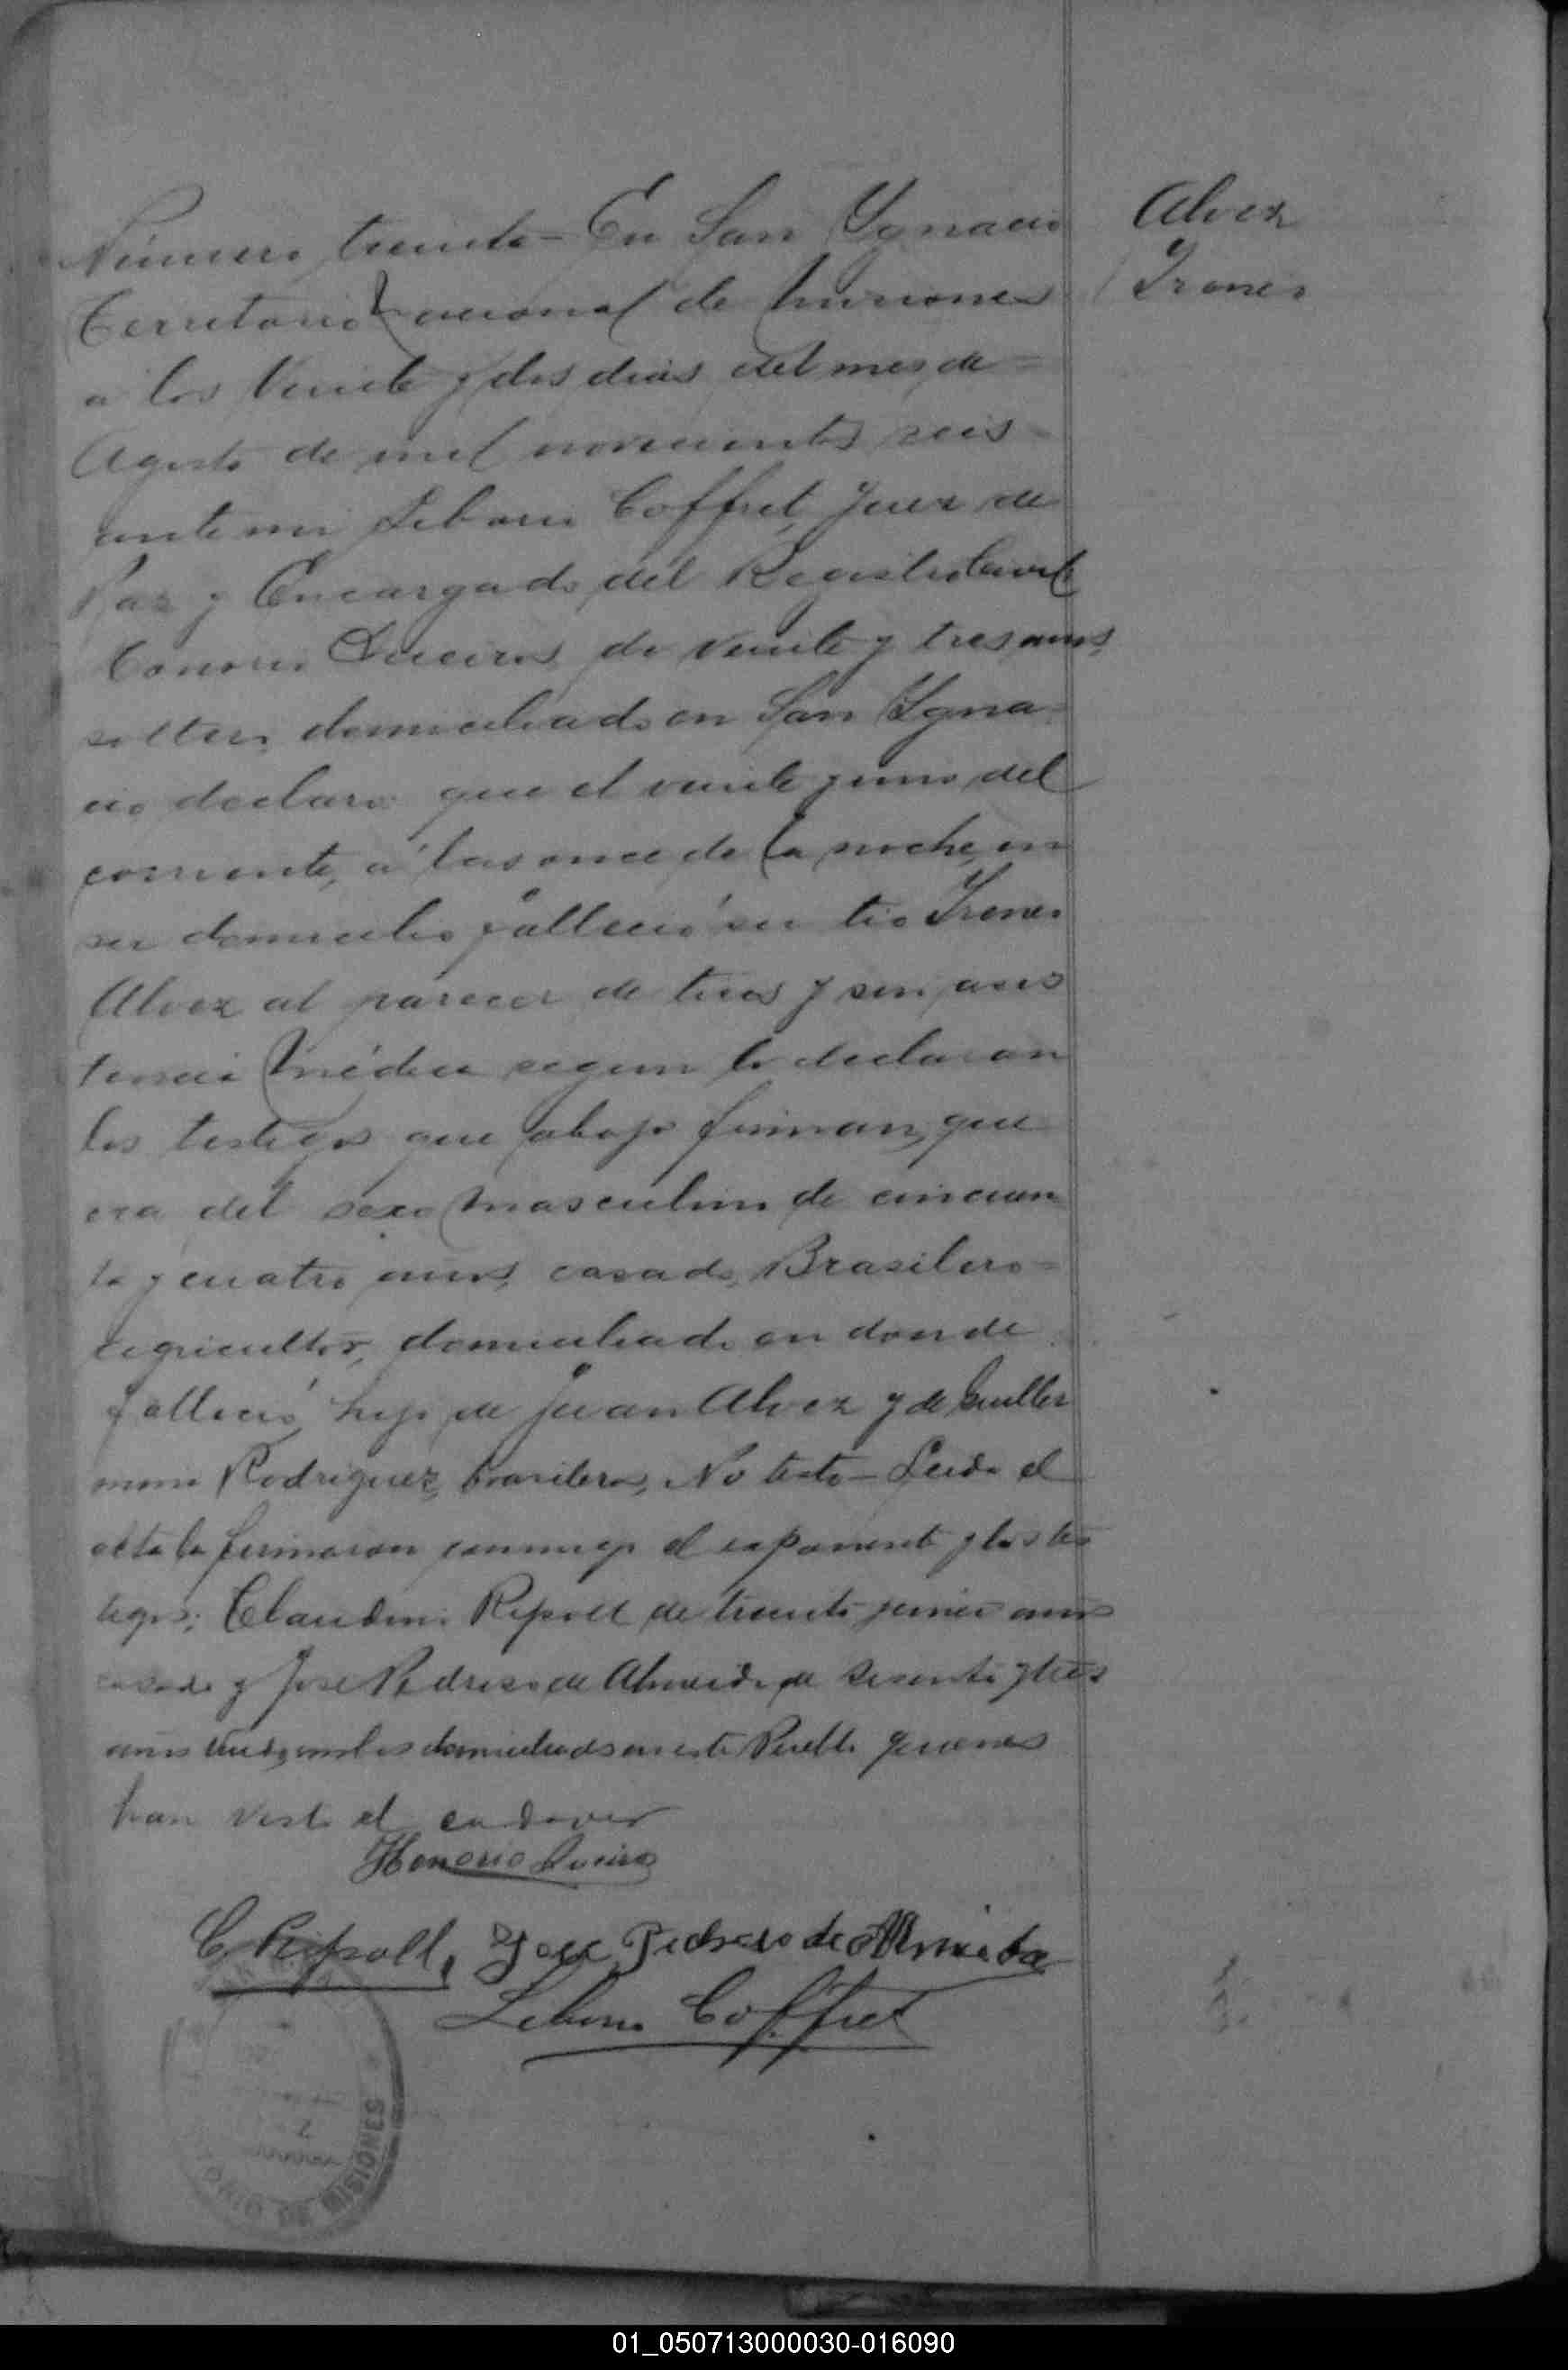 Alvez
Yreneo
Número treinta = En San Ygnacio
Territorio Nacional de Misiones
a los Veinte y dos dias del mes de =
Agosto de mil novecientos seis =
ante mi Liborio Coffret, Juez de
Paz y Encargado del Registro Civil
Honorio Queiros de veinte y tres años,
soltero, domiciliado en San Ygna=
cio declaró que el veinte y uno del
corriente, a las once de la noche, en
su domicilio falleció su tio Yreneo
Alvez al parecer de tisis y sin asis
tencia Médica segun lo declaran
los testigos que abajo firman, que
era del sexo masculino de cincuen
ta y cuatro años, casado, Brasilero =
agricultor, domiciliado en donde
falleció, hijo de Juan Alvez y de Guiller
mina Rodriguez, brasileros, No testó = Leida el
acta la firmaron conmigo el exponente y los tes
tigos; Claudino Ripoll de treinta y años
casado y José Pedroso de Almeida de sesenta y tres
años viudo, ambos domiciliados en este Pueblo quienes
han visto el cadaver
Honorio Queiros
C. Ripoll, Jose Pedroso de Almeida
Liborio Coffret
MISIONES
01_050713000030-016090